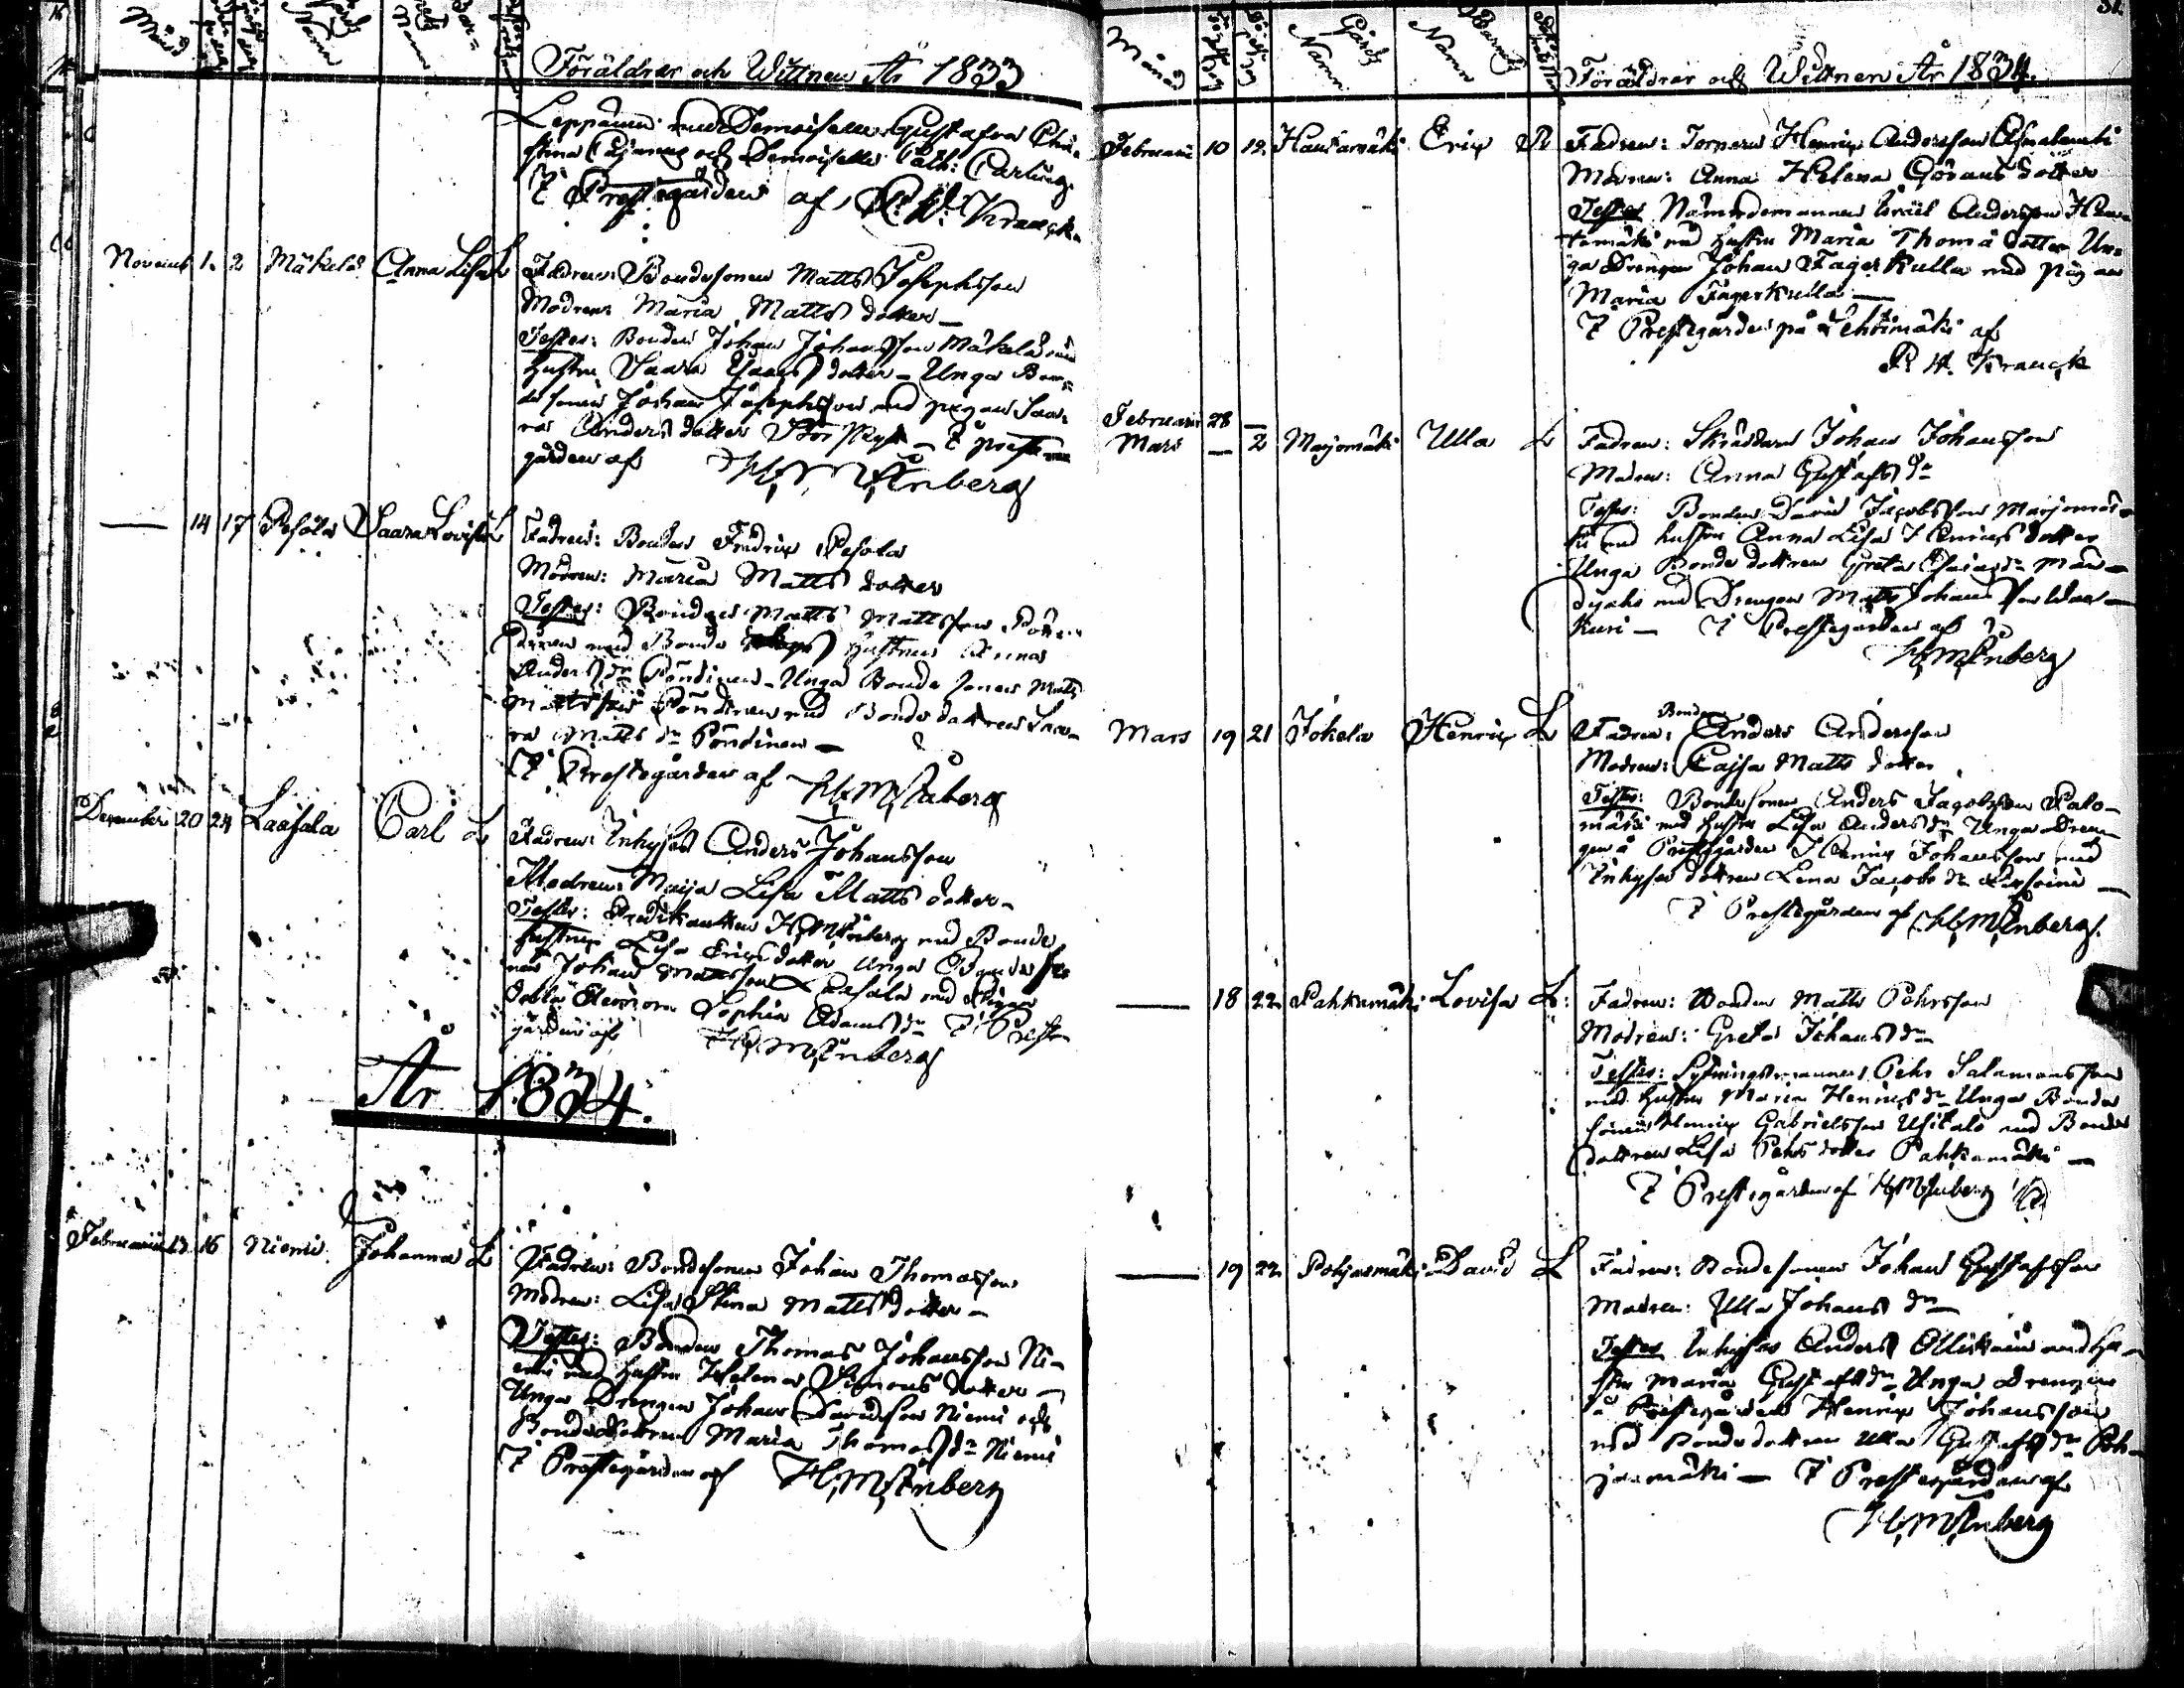 Månad
Gårds Namn
Namn
Föräldrar och Wittnen År 1833
Leppänen med Demoiselle Gustafva Chri-
stina Cajanus och Demoiselle Cath: Carling.
I Prestegården af, R. H. Kranck.
Novemb 1. 2 Mäkelä Anna Lisa L Fadren: Bondesonen Matts Josephsson
Modren Maria Matts dotter
Testes: Bonden Johan Johansson Mäkelä med
Hustru Saara Isaacs dotter - Unga Bon-
de sonen Johan Josephsson med pigan Saa-
ra Anders dotter - I preste
gården af H. M. Enberg
— 14 17 Pesola Saara Lovisa L Fadren: Bonden Fredric Pesola
Modren: Maria Matts dotter
Testes: Bonden Matts Mattsson Pön-
dinen med Bonde Hustrun Anna
Anders dr Pöndinen - Unga Bonde sonen Matts
Mattsson Pöndinen med Bonde dottren Saa-
ra Matts dr Pöndinen —
I Prestegården af H. M. Enberg
December 20 24 Laasala Carl L Fadren: Inhyses Anders Johansson
Modren: Maija Lisa Matts dotter -
Testes: Predikanten H. M. Enberg med Bonde
hustrun Lisa Erics dotter Unga Bonde so
nen Johan Mattsson Laasala med Pigan
Sophia Adams dr I Preste
gården af H. M. Enberg
År 1834.
Februarii 13 16 Niemi Johanna L Fadren: Bondesonen Johan Thomasson
Modren: Lisa Stina Matts dotter -
Testes: Bonden Thomas Johansson Ni-
emi med Hustru Helena Simons dotter -
Unga Drengen Johan Davidsson Niemi och
Bondedottren Maria Thomas dr Niemi
I Prestegården af H. M. Enberg
31.
Månad
Gårds Namn
Barnets Namn
Föräldrar och Wittnen År 1834.
Februarii 10 12. Erip R Fadren: Torparen Henrip Andersson
Modren: Anna Helena Görans dotter
Testes Nämndemannen Israel Andersson
med Hustru Maria Thomä dotter Un-
ga Drengen Johan Fagerkulla med pigan
Maria Fagerkulla —
I Prestegården på Lehtimäki af
R. H. Kranck
Februarii 28 —
Mars — 2 Marjomäki Ulla L Fadren: Skräddaren Johan Johansson
Modren: Anna Gustafs dr
Testes: Bonden David Jacobsson Marjomä-
ki med hustru Anna Lisa Henrics dotter
Unga Bonde dottren Greta Esaias dr Män-
dyaho med Drengen Matts Johansson
kuri — I Prestegården af
H. M. Enberg
Mars 19 21 Jokela Henrip L Fadren: Bonden Anders Andersson
Modren: Cajsa Matts dotter
Testes: Bondesonen Anders Jacobsson Palo-
mäki med hustru Lisa Anders dr Unga Dren-
gen å Prestgården Henrip Johansson med
Inhyses dottren Lena Jacobs dr
I Prestegården af H. M. Enberg.
— 18 22. Pahkamäki Lovisa L: Fadren: Bonden Matts Pehrsson
Modren: Greta Johans dr
Testes: Sytningsmannen Pehr Salamonsson
med hustru Maria Henrics dr Unga Bonde
sonen Henrip Gabrielsson Usitalo med Bonde
dottren Lisa Pehrs dotter Pahkamäki —
I Prestegården af H. M. Enberg
— 19 22. Pohjasmäki David L Fadren: Bondesonen Johan Gustafsson
Modren: Ulla Johans dr
Testes Inhyses Anders Ollikain med hu-
stru Maria Gustafs dr Unga Drengen
å Prestegården Henrip Johansson
med Bonde dottren Ulla Gustafs dr Poh-
jasmäki — I Prestegården af
H. M. Enberg